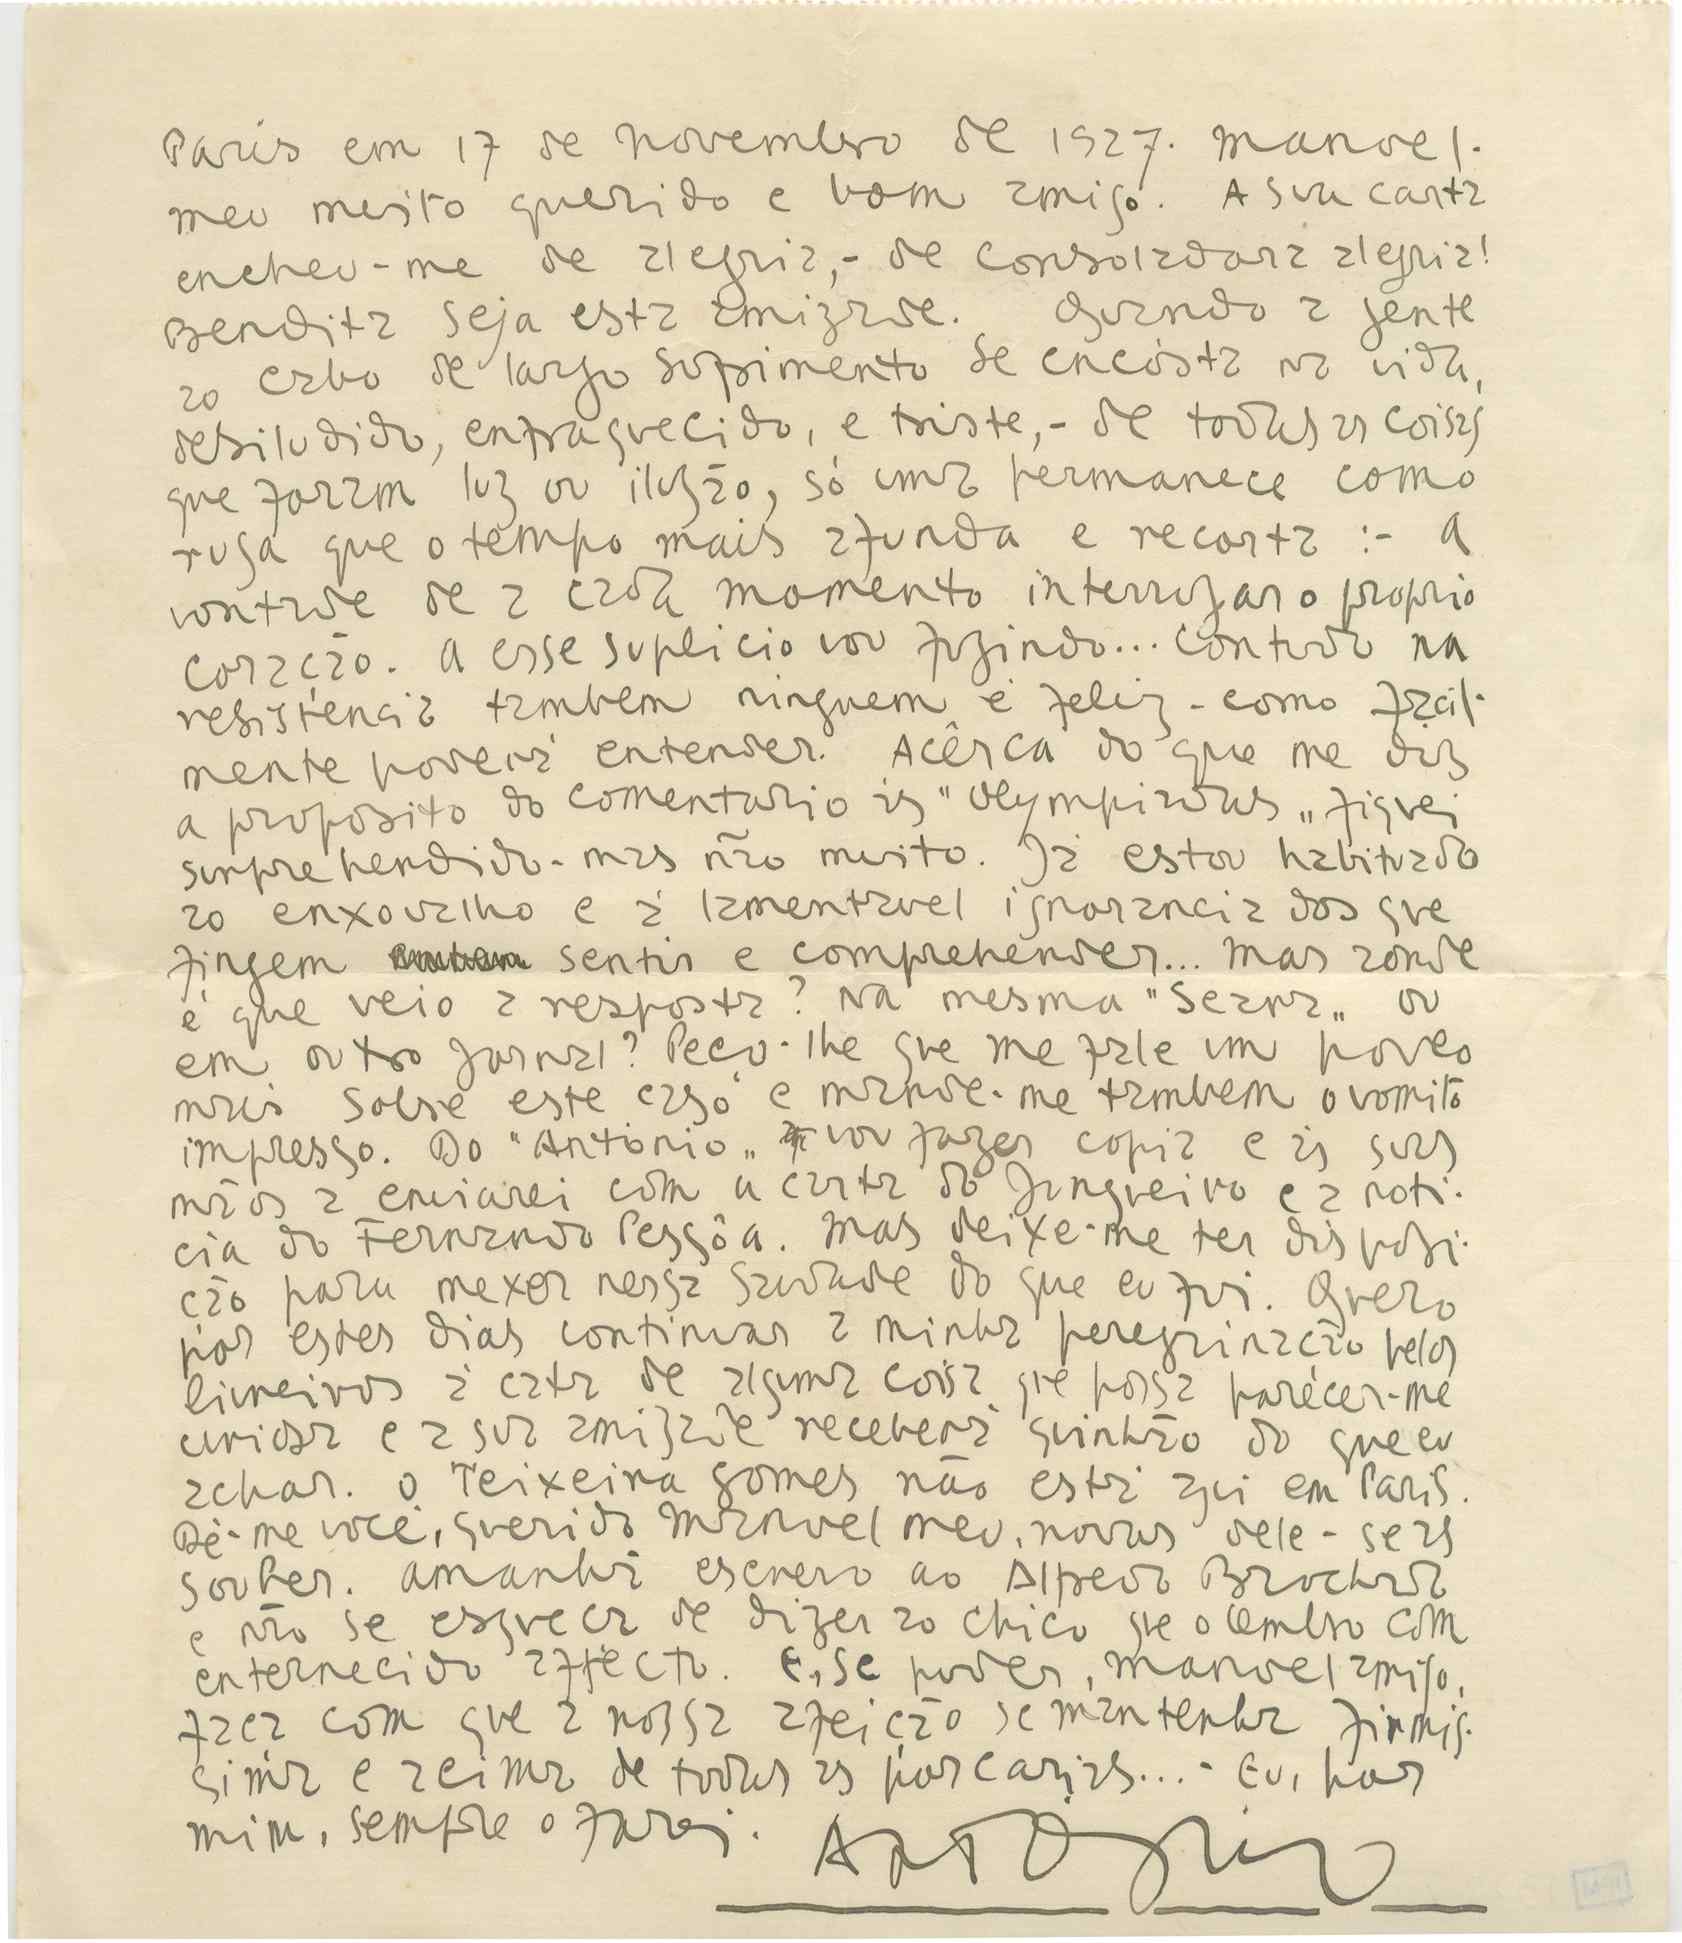 Paris em 17 de Novembro de 1927. Manoel.
meu muito querido e bom amigo. A sua carta
encheu-me de alegria,- de consoladora alegria!
Bendita seja esta amizade. Quando a gente
ao cabo de largo sofrimento se encósta na vida,
desiludido, enfraquecido, e triste,- de todas as coisas
que foram luz ou ilusão, só uma permanece como
ruga que o tempo mais afunda e recorta :- A
vontade de a cada momento interrogar o proprio
coração. A esse suplicio vou fugindo... Contudo na
resistência tambem ninguem é feliz - como facil-
mente poderá entender. Acêrca do que me diz
a proposito do comentario ás "Olympiadas" fiquei
surprehendido - mas não muito. Já estou habituado
ao enxovalho e á lamentavel ignorancia dos que
fingem sentir e comprehender... Mas aonde
é que veio a resposta? Na mesma "Seara" ou
em outro jornal? Peço-lhe que me fale um pouco
mais sobre este caso e mande-me tambem o vomito
impresso. Do "António" vou fazer copia e ás suas
mãos a enviarei com a carta do Junqueiro e a noti-
cia do Fernando Pessôa. Mas deixe-me ter disposi-
ção para mexer nessa saudade do que eu fui. Quero
por estes dias continuar a minha peregrinação pelos
livreiros á cata de alguma coisa que possa parecer-me
curiosa e a sua amizade receberá quinhão do que eu
achar. O Teixeira Gomes não está aqui em Paris.
Dê-me você, querido Manoel meu, novas dele - se as
souber. Amanhã escrevo ao Alfredo Brochado
e não se esqueça de dizer ao Chico que o lembro com
enternecido affecto. E, se poder, Manoel amigo,
faça com que a nossa afeição se mantenha firmis-
sima e acima de todas as porcarias... - Eu, por
mim, sempre o farei. António